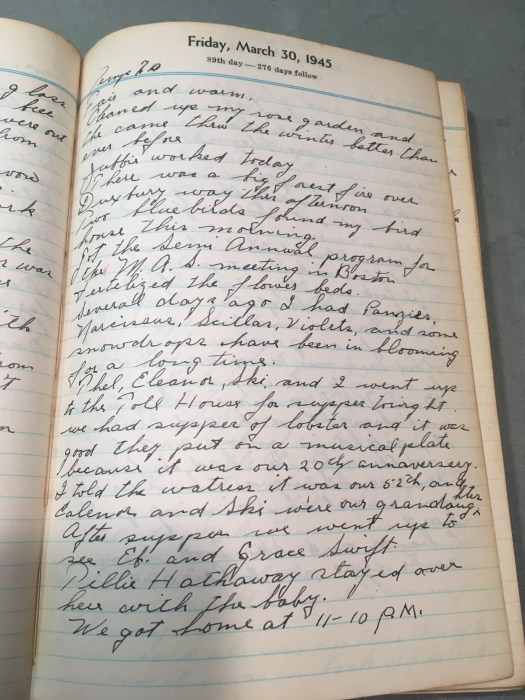 g lass
bee
were out
from
wood
ark
the
r was
ith
rom
t
n
Friday, March 30, 1945
89th day — 276 days follow
Temp 70
Fair and warm.
Cleaned up my rose garden and
the came thru the winter better than
ever before
worked today
There was a big forest fire over
Duxbury way this afternoon
Two bluebirds found my bird
house this molning.
Got the Semi Annual program for
the M.A.S. meeting in Boston
Fertelized the flower beds.
Several days ago I had Panzies,
Narcissus, Scillas, Violets, and some
snowdrops have been in blooming
for a long time.
Thel, Eleanor, Ski, and I went up
to the Toll House for supper tonight.
we had supper of lobster and it was
good they put on a musical plate
because it was our 20th annaversery.
I told the watress it was our 52th, and
Ealenor and Ski were our grandaughter
After supper we went up to
see Ef. and Grace Swift.
Tillie Hathaway stayed over
here with the baby.
We got home at 11-10 P.M.